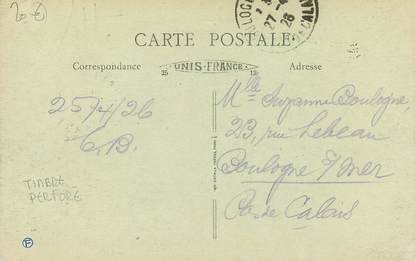 20 €
27-4
26
CARTE POSTALE
Correspondance
UNIS-FRANCE
Adresse
25
25/4/26
C.B.
Mlle Suzanne Boulogne,
23, rue Lebeau
Boulogne s/mer
Pas de Calais
TIMBRE
PERFORE